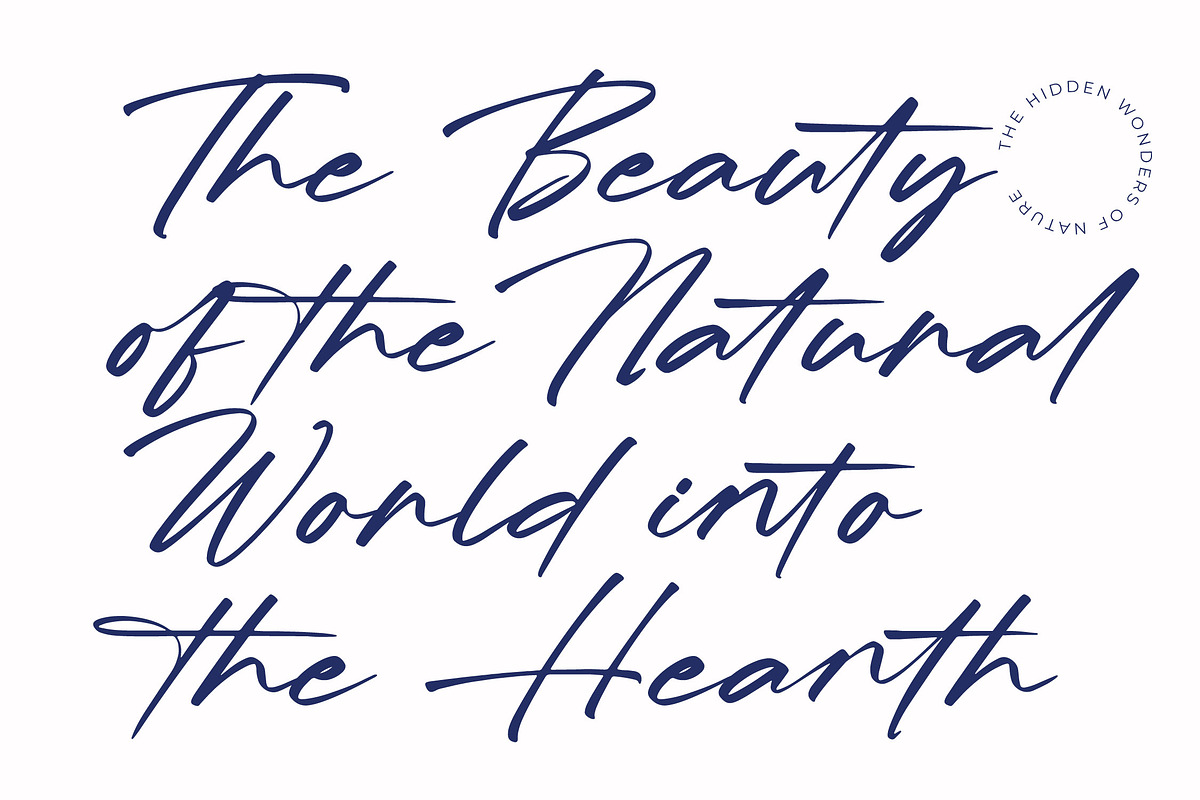 The Beauty
THE HIDDEN WONDERS OF NATURE
of the Natural
World into
the Hearth